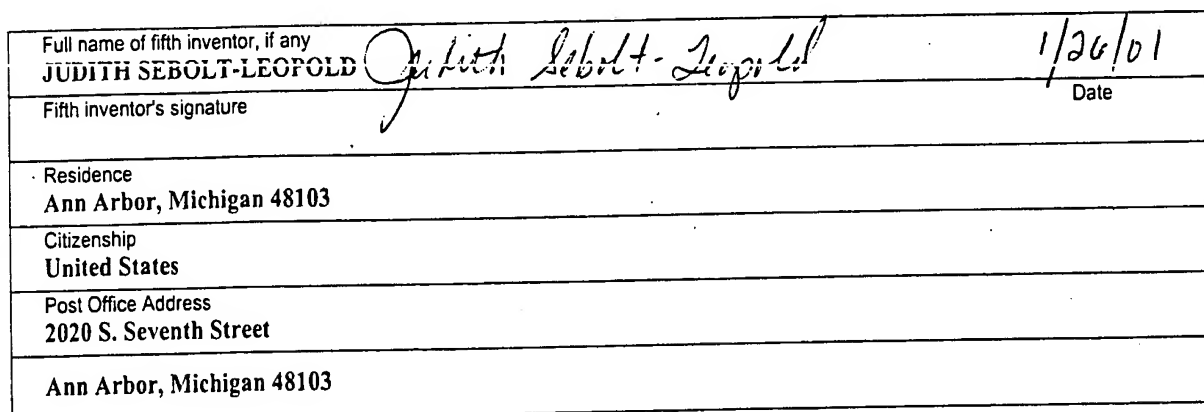 Full name of fifth inventor, if any
JUDITH SEBOLT-LEOPOLD Judith Sebolt-Leopold 1/26/01
Fifth inventor's signature Date
Residence
Ann Arbor, Michigan 48103
Citizenship
United States
Post Office Address
2020 S. Seventh Street
Ann Arbor, Michigan 48103